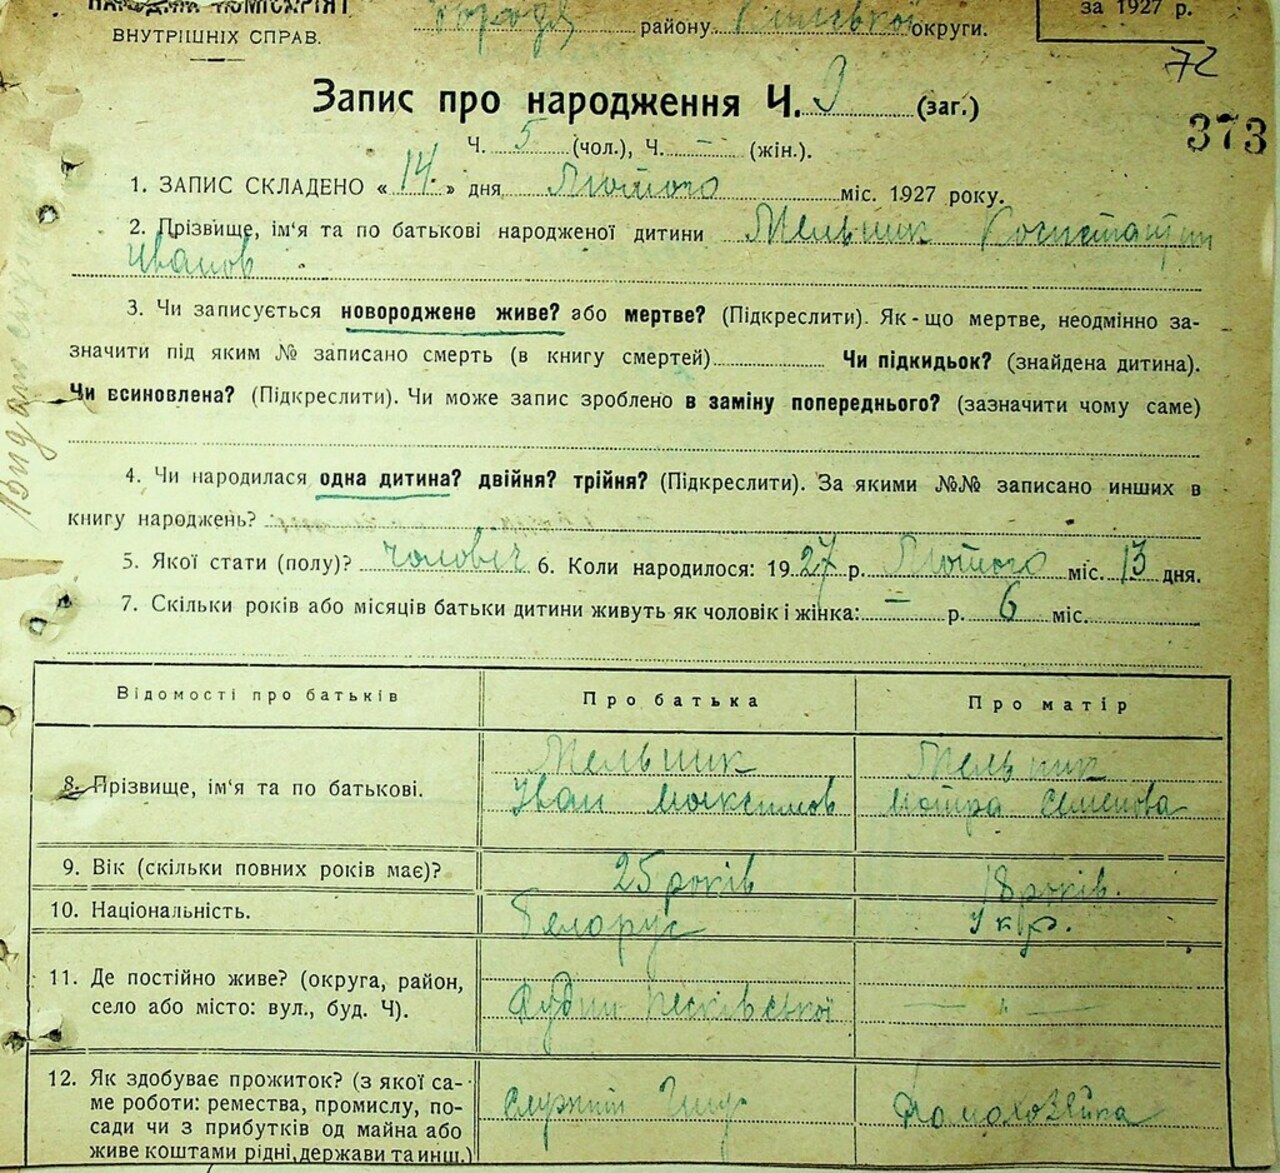 НАРОДНІЙ КОМІСАРІЯТ
ВНУТРІШНІХ СПРАВ.
району Київської округи.
за 1927 р.
72
373
Запис про народження Ч. 9 (заг.)
Ч. 5 (чол.), Ч. – (жін.).
1. ЗАПИС СКЛАДЕНО « 14 » дня Лютого міс. 1927 року.
2. Прізвище, ім'я та по батькові народженої дитини Мельник Констатин
Іванов
3. Чи записується новороджене живе? або мертве? (Підкреслити). Як-що мертве, неодмінно за-
значити під яким № записано смерть (в книгу смертей) Чи підкидьок? (знайдена дитина).
Чи всиновлена? (Підкреслити). Чи може запис зроблено в заміну попереднього? (зазначити чому саме)
4. Чи народилася одна дитина? двійня? трійня? (Підкреслити). За якими №№ записано инших в
книгу народжень?
5. Якої стати (полу)? чоловіч 6. Коли народилося: 1927 р. Лютого міс. 13 дня.
7. Скільки років або місяців батьки дитини живуть як чоловік і жінка: – р. 6 міс.
Відомості про батьків Про батька Про матір
8. Прізвище, ім'я та по батькові. Мельник Мельник
Іван Максимов Мотря Семенова
9. Вік (скільки повних років має)? 25 років 18 років.
10. Національність. Белорус Укр.
11. Де постійно живе? (округа, район,
село або місто: вул., буд. Ч). — " —
12. Як здобуває прожиток? (з якої са-
ме роботи: ремества, промислу, по- Домохозейка
сади чи з прибутків од майна або
живе коштами рідні, держави та инш.)